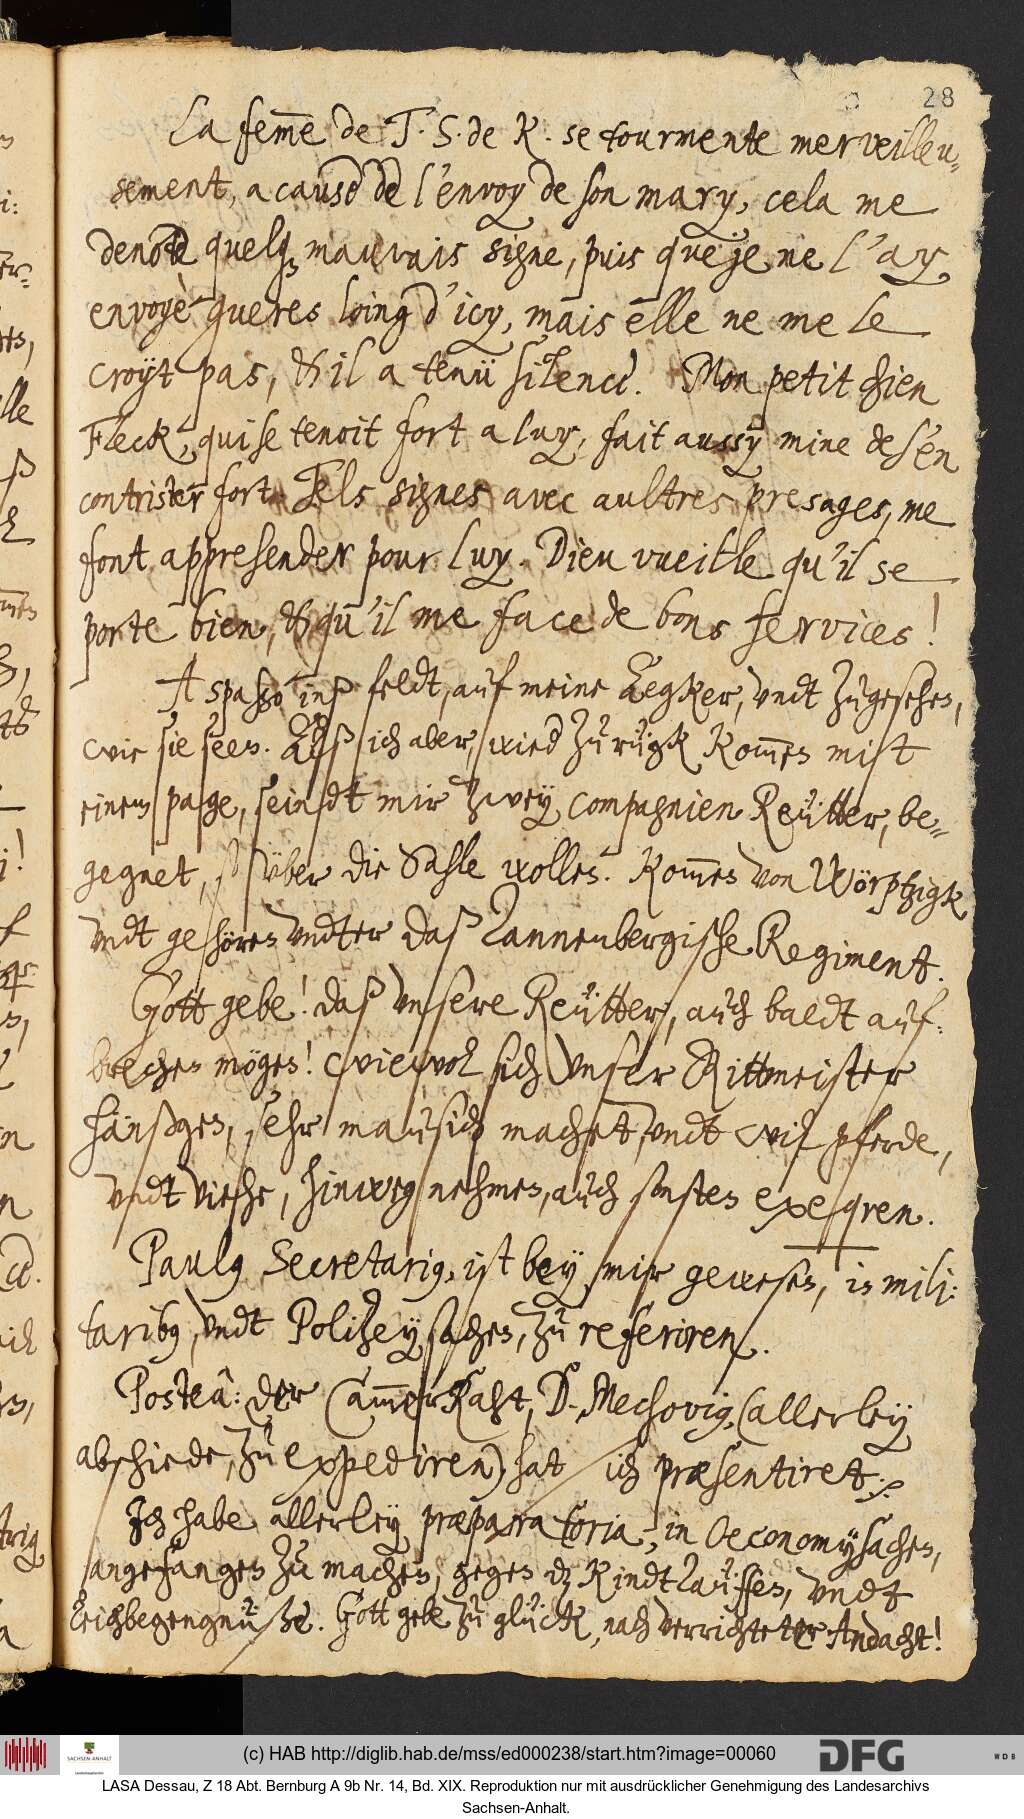 28
La fem̅e de T. S. de K. se tourmente merveilleu-
sement, a cause de l'envoy de son mary, cela me
denote quelq3 mauvais signe, puis que je ne l'ay
envoyè gueres loing d'icy, mais elle ne me le
croyt pas, & il a tenü silence. Mon petit chien
Fleck, qui se tenoit fort a luy, fait aussy mine de s'en
contrister fort. Tels signes avec aultres presages, me
font apprehender pour luy. Dieu vueille qu'il se
porte bien, & qu'il me face de bons services!
A spasso inß feldt, auf meine Aegker, vndt zugesehen,
wie sie seen. Alß ich aber, wied zurügk kom̅en mitt
einem page, seindt mir zwey compagnien Reütter, be-
gegnet, so über die Sahle wollen. Kom̅en von Wörptzigk
vndt gehören vndter daß Tannenbergische Regiment.
Gott gebe! daß vnsere Reütter, auch baldt auf:
brechen mögen! wiewol sich vnser Rittmeister
hänßgen, sehr mausich machet, vndt wil pferde,
vndt Viehe, hinweg nehmen, auch sonsten exeqren.
Paulg Secretarig, ist bey mir gewesen, in mili:
taribg, vndt Polizey sachen, zu referiren.
Posteâ: der Cam̅er Raht, D. Mechovig, (allerley
abschiede, zu expediren) hat sich præsentiret.
Ich habe allerley præparatoria, in Oeconomysachen,
angefangen zu machen, gegen dz Kindtauffen, vndt
Leichbegengnüße. Gott gebe zu glück, nach verrichteter Andacht!
(c) HAB http://diglib.hab.de/mss/ed000238/start.htm?image=00060
SACHSEN-ANHALT
DFG
WDB
LASA Dessau, Z 18 Abt. Bernburg A 9b Nr. 14, Bd. XIX. Reproduktion nur mit ausdrücklicher Genehmigung des Landesarchivs
Sachsen-Anhalt.